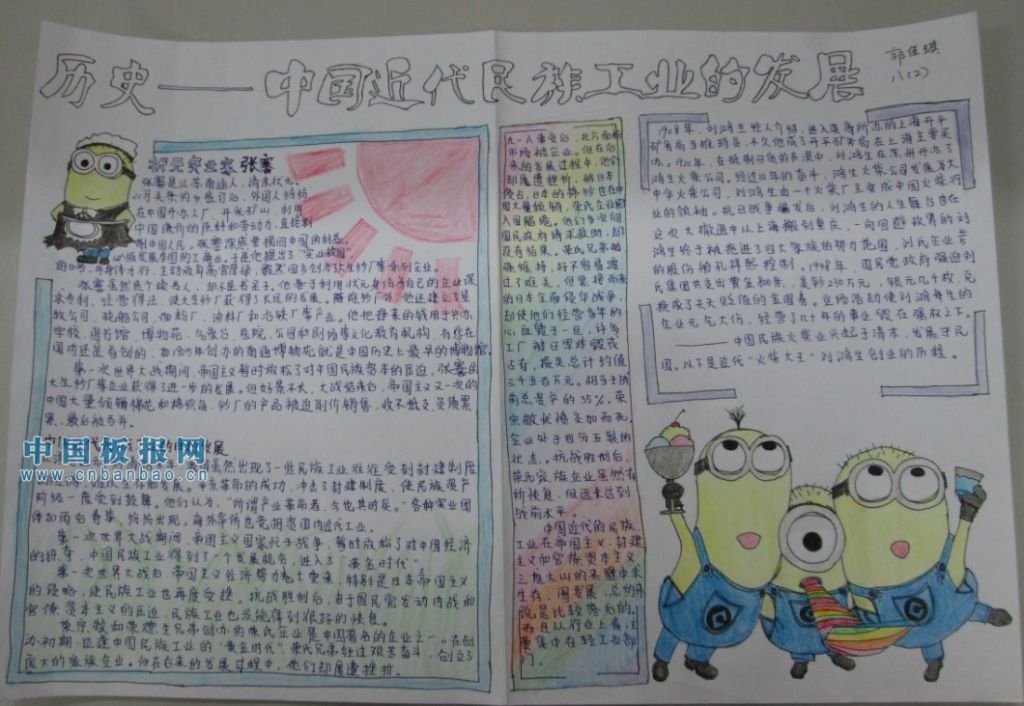 历史——中国近代民族工业的发展
郭佳琪
八(2)
状元实业家 张謇
张謇是江苏南通人,清末状元。
《马关条约》签订后,外国人纷纷
在中国开办工厂、开采矿山,利用
中国廉价的原料和劳动力,直接剥
削中国人民。张謇深感要挽回中国的利益,
必须发展本国的工商业。于是他提出了“实业救国”
张謇虽然是个读书人,却不是书呆子。他善于利用状元身份为自己的企业谋
求专利,经营得法,使大生纱厂获得了长足的发展。随后他还建立了垦
牧公司、轮船公司、面粉厂、油料厂和冶铁厂等产业。他把挣来的钱用于兴办
学校、图书馆、博物苑、气象台、医院、公园和剧场等文化教育机构,有些在
国内还是首创的,如1905年创办的南通博物苑就是中国历史上最早的博物馆。
第一次世界大战期间,帝国主义暂时放松了对中国民族资本的压迫,张謇的
大生纱厂等企业获得了进一步的发展。但好景不长,大战结束后,帝国主义又一次向
中国大量倾销棉花和棉织品,纱厂的产品被迫削价销售,收不抵支,负债累
累,最后被吞并。
中国板报网
www.cnbanbao.cn
虽然出现了一些民族工业往往受到封建制度
辛亥革命的成功,冲击了封建制度,使民族资产
阶级一度受到鼓舞。他们认为,“所谓产业革命者,今也其时矣。”各种实业团
体如雨后春笋,纷纷出现,海外华侨也竞相投资国内近代工业。
第一次世界大战期间,帝国主义国家忙于战争,暂时放松了对中国经济
的掠夺,中国民族工业得到了一个发展机会,进入了“黄金时代”。
第一次世界大战后,帝国主义经济势力卷土重来,特别是日本帝国主义
的侵略,使民族工业也再度受挫。抗战胜利后,由于国民党发动内战和
官僚资本主义的压迫,民族工业也没能得到很好的恢复。
荣宗敬和荣德生兄弟创办的荣氏企业是中国著名的企业之一。在创
办初期,正逢中国民族工业的“黄金时代”,荣氏兄弟经过艰苦奋斗,创立了
庞大的家族企业。但在后来的发展过程中,他们却屡遭挫折。
九一八事变后,北方面粉
市场被
来的发展过程中,他们
却屡遭挫折。被日本
侵占,日本的棉纱也在中
国大量倾销,荣氏企业陷
入困境。他们多次向
国民政府请求救助,却
没有结果。荣氏兄弟勉
强维持,好不容易渡
过了难关,但紧接而来
的日本全面侵华战争,
却使他们经营多年的
心血毁于一旦,许多
工厂被日军炸毁或
占有,损失总计约值
三千五百万元。相当于战
前总资产的35%。荣
宗敬忧愤交加而死,
企业处于四分五裂的
状态。抗战胜利后,
荣氏家族企业虽然有
所恢复,但远未达到
战前水平。
中国近代的民族
工业在帝国主义、封建
主义和官僚资本主义
三座大山的夹缝中求
生存、图发展,总的来
说是比较落后的。
而且从行业上看,主
要集中在轻工业部
门。
1908年,刘鸿生经人介绍,进入英商所办的上海开平
矿务局当推销员,不久他成了开平矿务局在上海主要买
办。1920年,在抵制日货的声浪中,刘鸿生在苏州开办了
鸿生火柴公司。经过10年的奋斗,鸿生火柴公司发展为大
中华火柴公司,刘鸿生由一个火柴厂主变成中国火柴行
业的领袖。抗日战争爆发后,刘鸿生的人生舞台也在
这次大撤退中从上海搬到重庆。一向回避政界的刘
鸿生终于被拖进了四大家族的势力范围,刘氏企业
的股份被孔祥熙控制。1948年,国民党政府强迫刘
氏集团共交出黄金800条、美钞230万元、银元几千枚,兑
换成了天天贬值的金圆券。这场活动使刘鸿生的
企业元气大伤,经营了几十年的事业毁在强权之下。
——中国民族火柴业兴起于清末,发展于民
国。以下是近代“火柴大王”刘鸿生创业的历程。